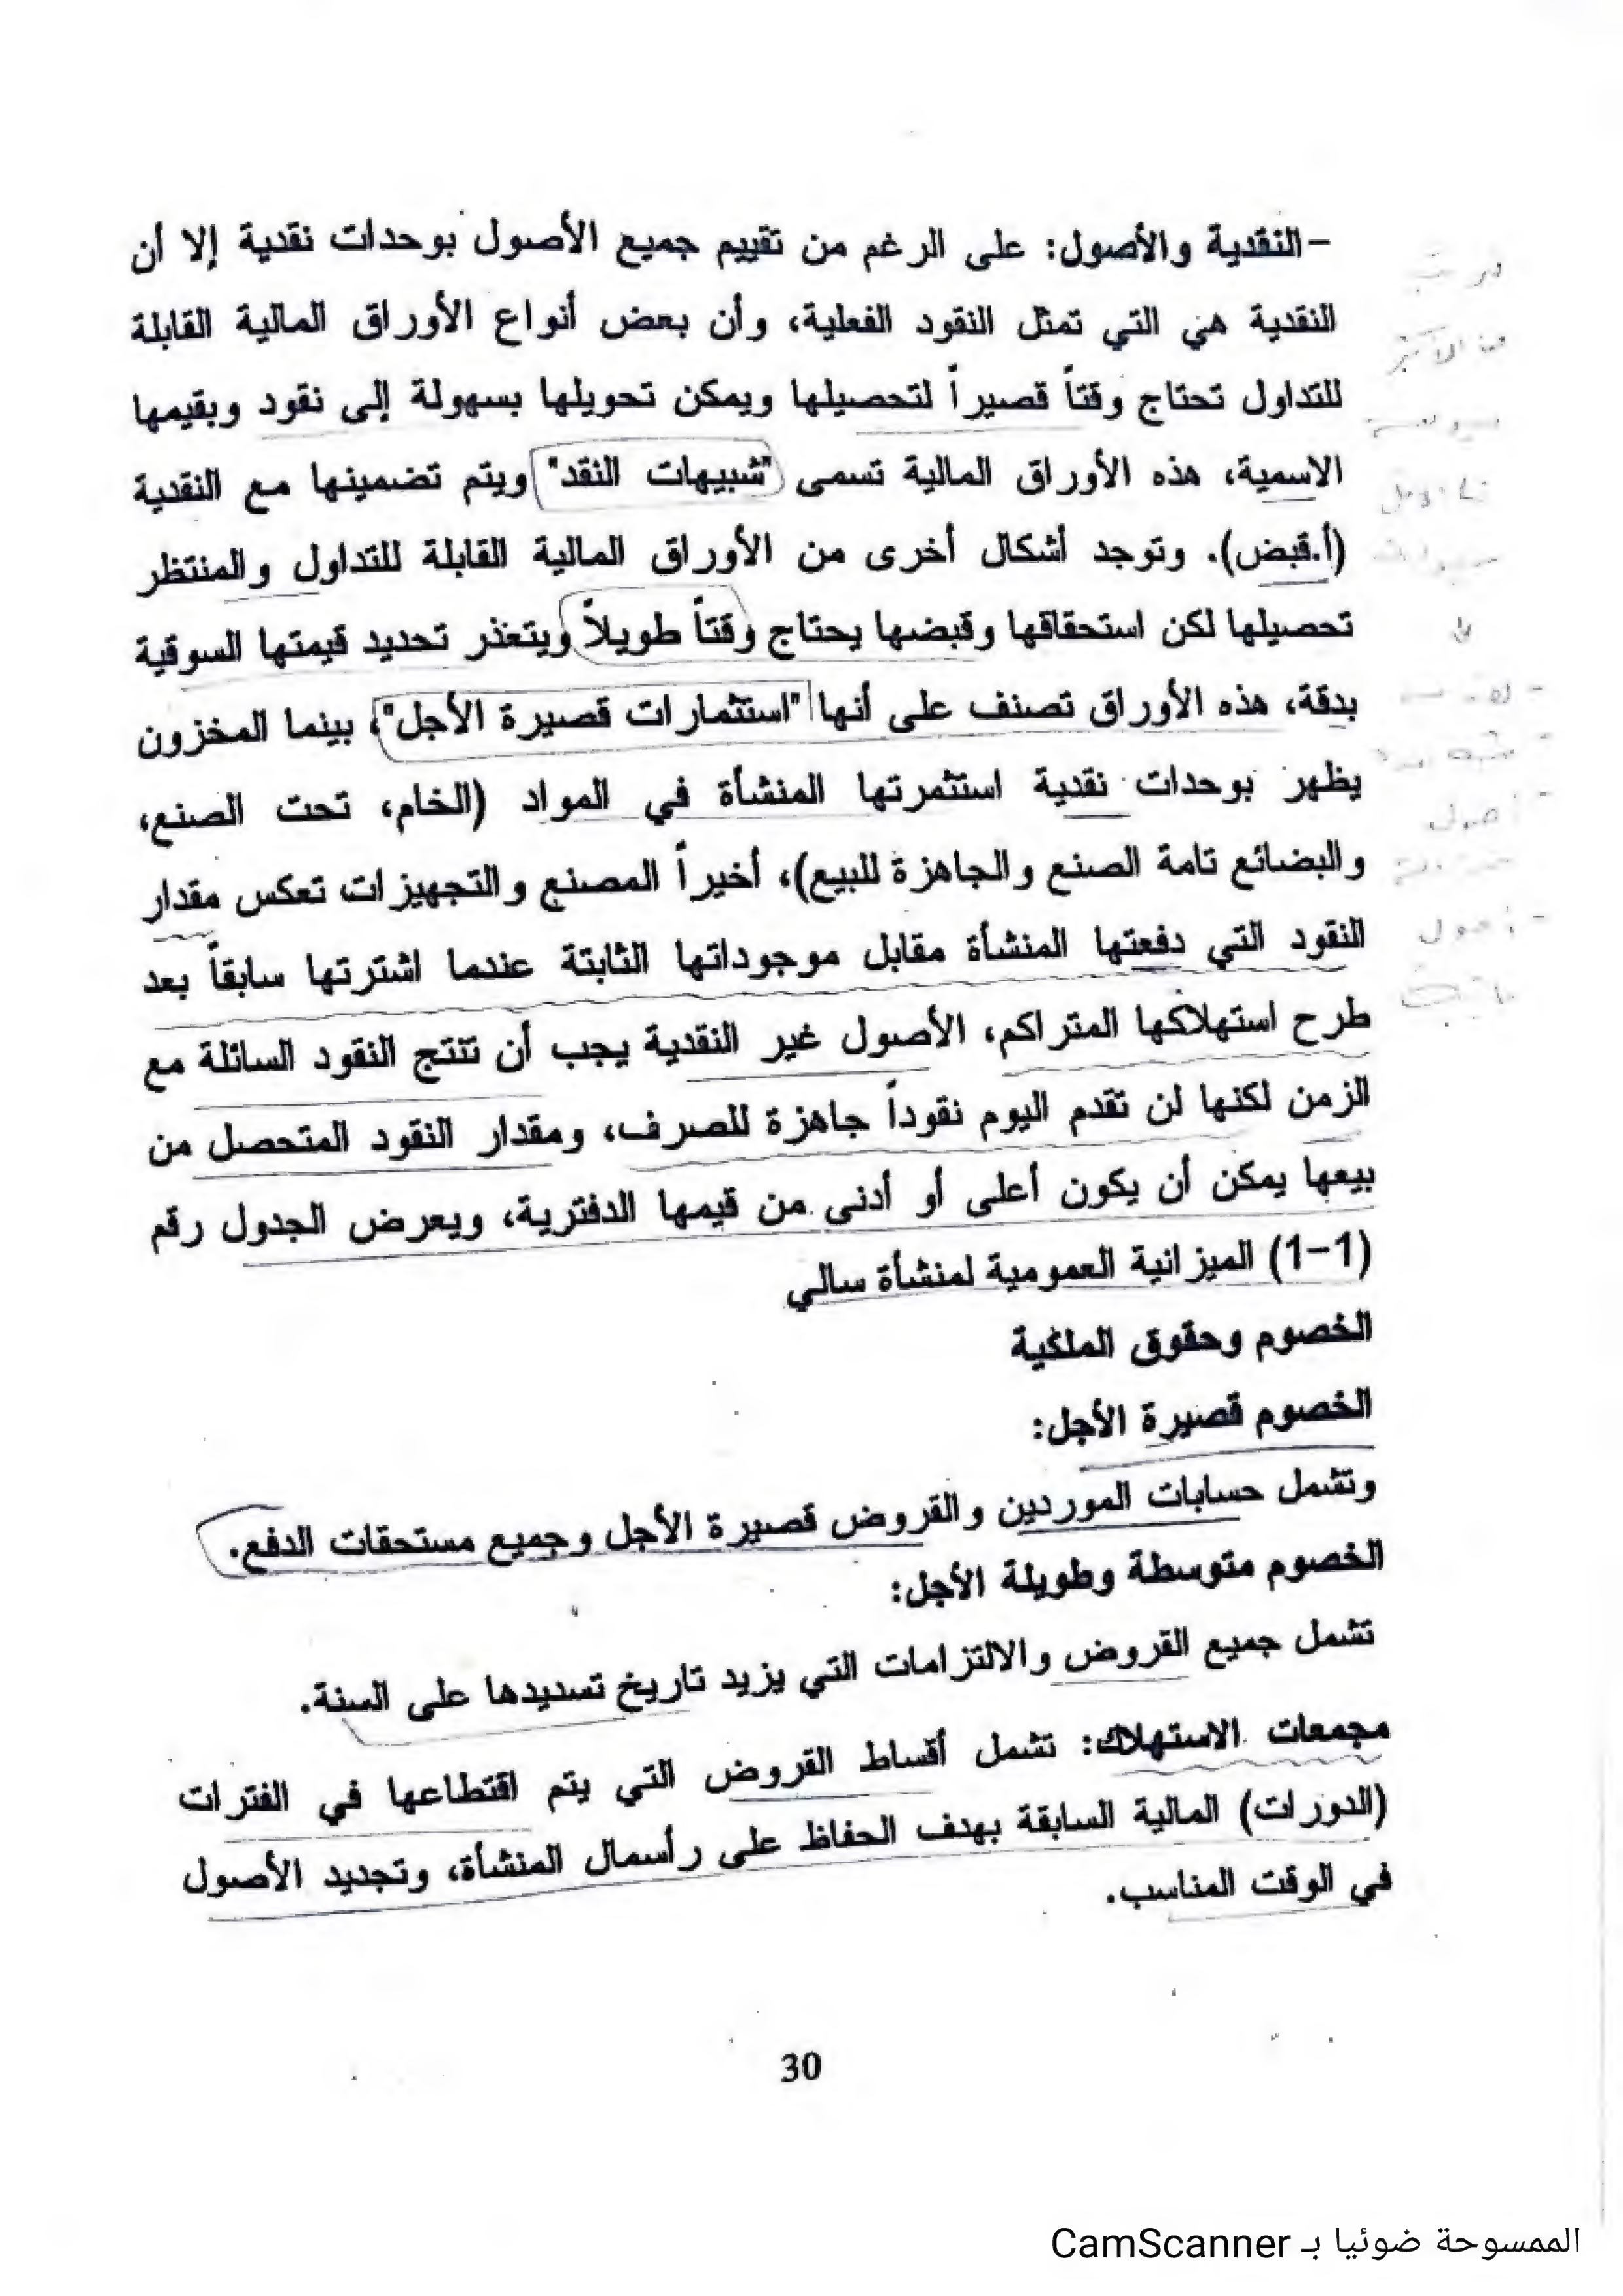 -النقدية والأصول: على الرغم من تقييم جميع الأصول بوحدات نقدية إلا أن
النقدية هي التي تمثل النقود الفعلية، وأن بعض أنواع الأوراق المالية القابلة
للتداول تحتاج وقتاً قصيراً لتحصيلها ويمكن تحويلها بسهولة إلى نقود وبقيمها
الاسمية، هذه الأوراق المالية تسمى "شبيهات النقد" ويتم تضمينها مع النقدية
(أ.قبض). وتوجد أشكال أخرى من الأوراق المالية القابلة للتداول والمنتظر
تحصيلها لكن استحقاقها وقبضها يحتاج وقتاً طويلاً ويتعذر تحديد قيمتها السوقية
بدقة، هذه الأوراق تصنف على أنها "استثمارات قصيرة الأجل"، بينما المخزون
يظهر بوحدات نقدية استثمرتها المنشأة في المواد (الخام، تحت الصنع،
والبضائع تامة الصنع والجاهزة للبيع)، أخيراً المصنع والتجهيزات تعكس مقدار
النقود التي دفعتها المنشأة مقابل موجوداتها الثابتة عندما اشترتها سابقاً بعد
طرح استهلاكها المتراكم، الأصول غير النقدية يجب أن تنتج النقود السائلة مع
الزمن لكنها لن تقدم اليوم نقوداً جاهزة للصرف، ومقدار النقود المتحصل من
بيعها يمكن أن يكون أعلى أو أدنى من قيمها الدفترية، ويعرض الجدول رقم
(1-1) الميزانية العمومية لمنشأة سالي
الخصوم وحقوق الملكية
الخصوم قصيرة الأجل:
وتشمل حسابات الموردين والقروض قصيرة الأجل وجميع مستحقات الدفع.
الخصوم متوسطة وطويلة الأجل:
تشمل جميع القروض والالتزامات التي يزيد تاريخ تسديدها على السنة.
مجمعات الاستهلاك: تشمل أقساط القروض التي يتم اقتطاعها في الفترات
(الدورات) المالية السابقة بهدف الحفاظ على رأسمال المنشأة، وتجديد الأصول
في الوقت المناسب.
30
الممسوحة ضوئيا بـ CamScanner